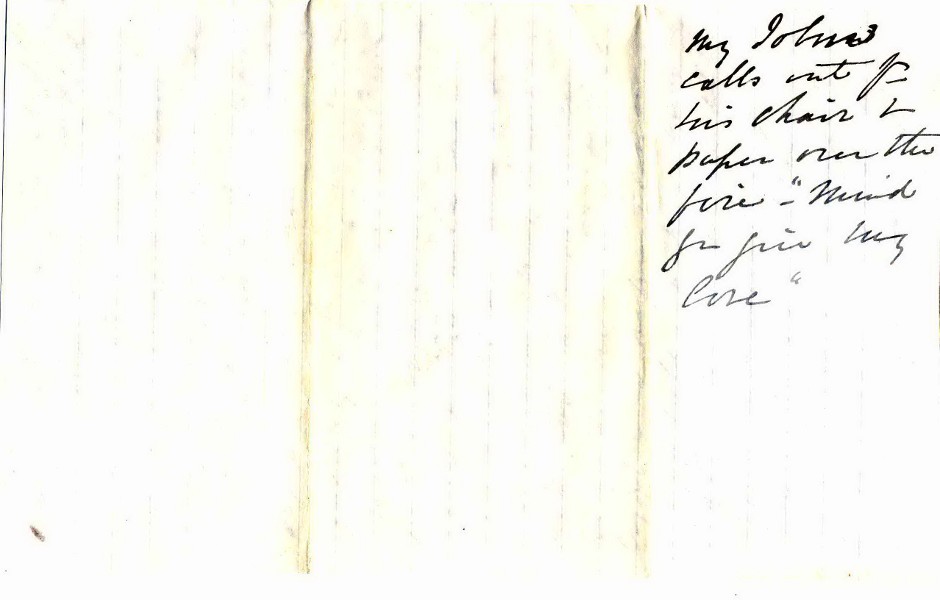 my Johnn
calls out fr
his chair &
paper over the
fire - "Mind
yr give my
love"